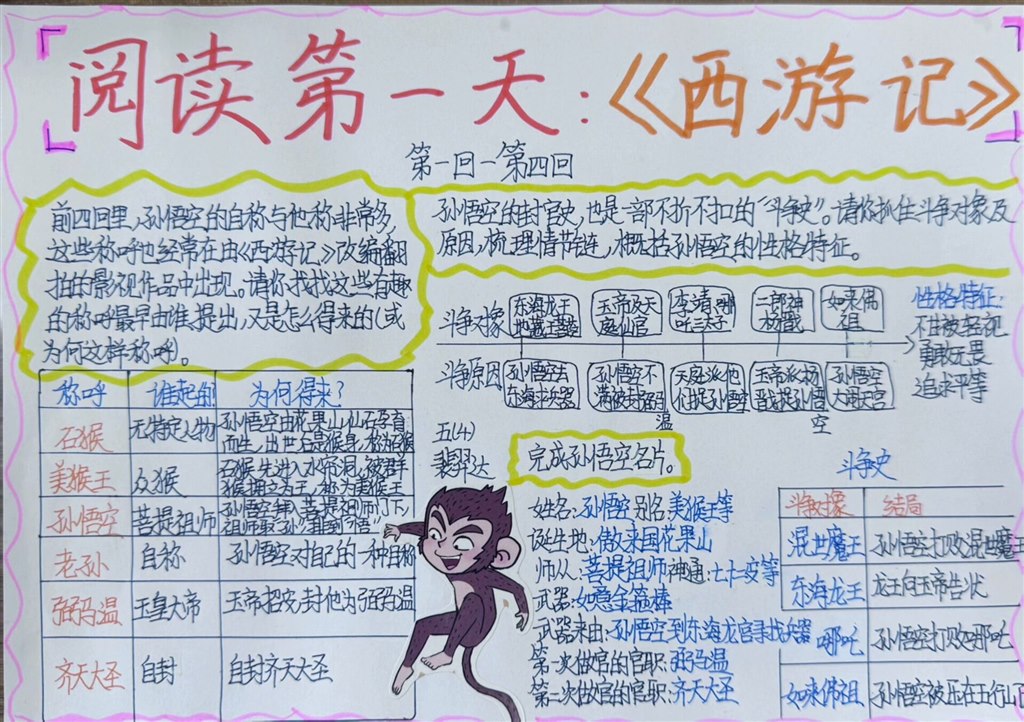 阅读第一天:《西游记》
第一回-第四回
前四回里,孙悟空的自称与他称非常多,
这些称呼也经常在由《西游记》改编翻
拍的影视作品中出现。请你找找这些有趣
的称呼最早由谁提出,又是怎么得来的(或
为何这样称呼)。
孙悟空的封官史,也是一部不折不扣的“斗争史”。请你抓住斗争对象及
原因,梳理情节链,概括孙悟空的性格特征。
斗争对象
东海龙王
地藏王菩萨
玉帝及天
庭仙官
李靖哪
吒三太子
二郎神
如来佛
祖
斗争原因
孙悟空去
东海求兵器
孙悟空不
满被封弼马
温
天庭派他
们捉孙悟空
玉帝派杨
戬捉孙悟
空
孙悟空
大闹天宫
性格特征:
不甘被轻视
勇敢无畏
追求平等
称呼 谁起的 为何得来?
石猴 无特定人物 孙悟空由花果山仙石孕育
而生,出世后是猴身,称为石猴
美猴王 众猴 石猴先进入水帘洞,被群
猴拥立为王,称为美猴王
孙悟空 菩提祖师 孙悟空拜入菩提祖师门下,
祖师取“孙”姓到“悟”
老孙 自称 孙悟空对自己的一种自称
弼马温 玉皇大帝 玉帝招安,封他为弼马温
齐天大圣 自封 自封齐天大圣
五(4)
裴羿达
完成孙悟空名片。
姓名:孙悟空 别名:美猴王等
诞生地:傲来国花果山
师从:菩提祖师 神通:七十二变等
武器:如意金箍棒
武器来由:孙悟空到东海龙宫寻找兵器
第一次做官的官职:弼马温
第二次做官的官职:齐天大圣
斗争史
斗争对像 结局
混世魔王 孙悟空打败混世魔王
东海龙王 龙王向玉帝告状
哪吒 孙悟空打败哪吒
如来佛祖 孙悟空被压在五行山下